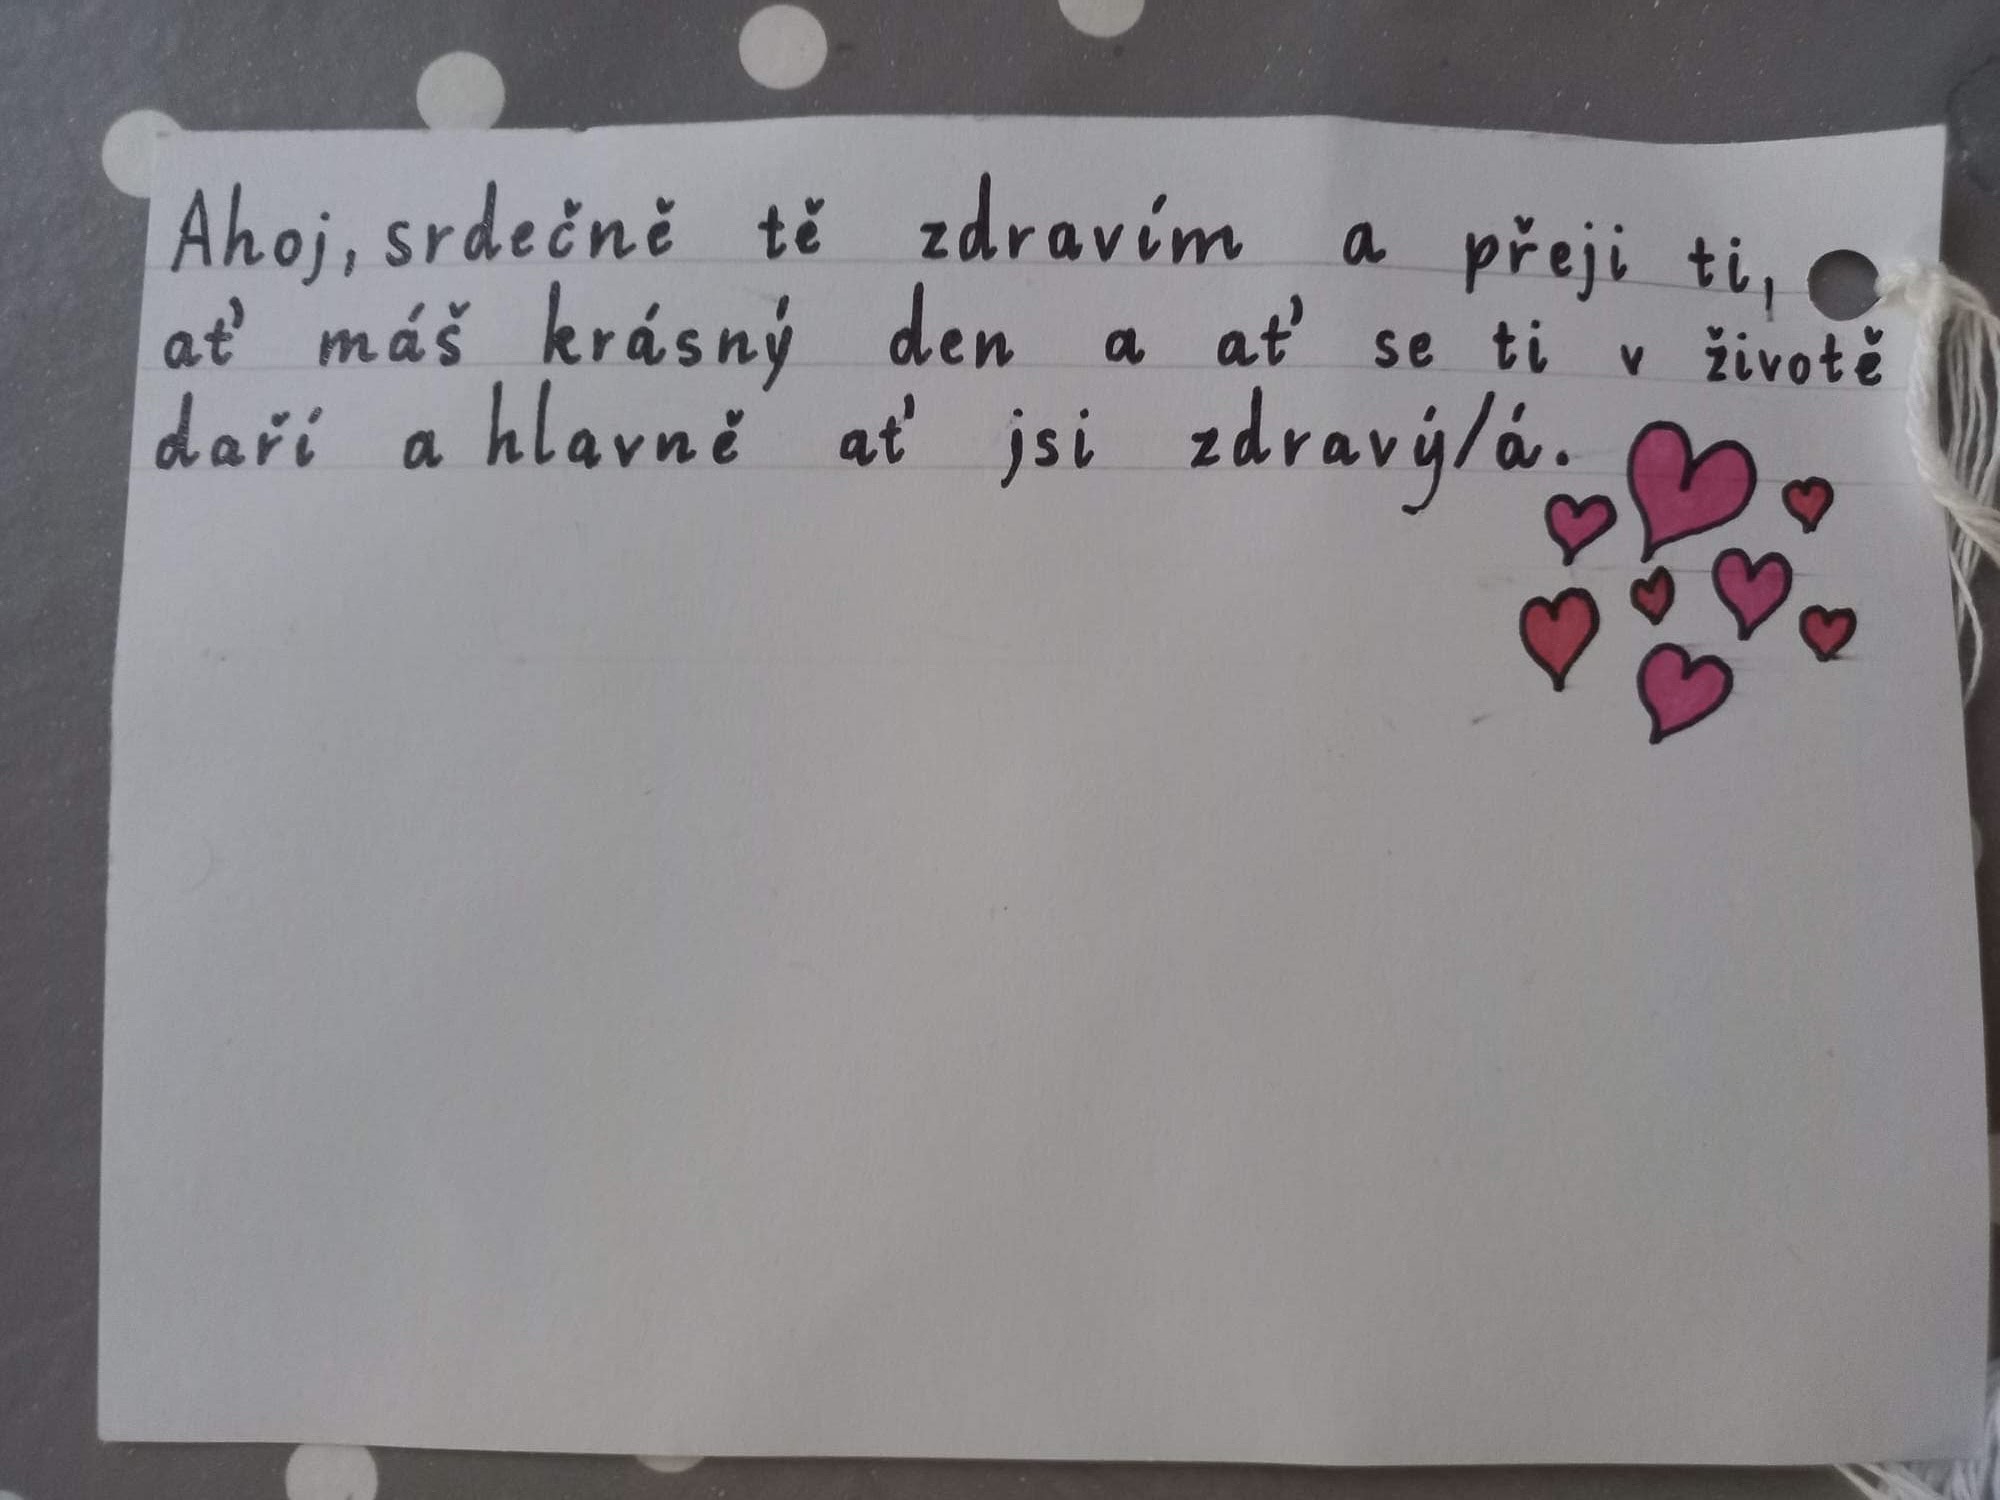 Ahoj, srdečně tě zdravím a přeji ti,
ať máš krásný den a ať se ti v životě
daří a hlavně ať jsi zdravý/á.